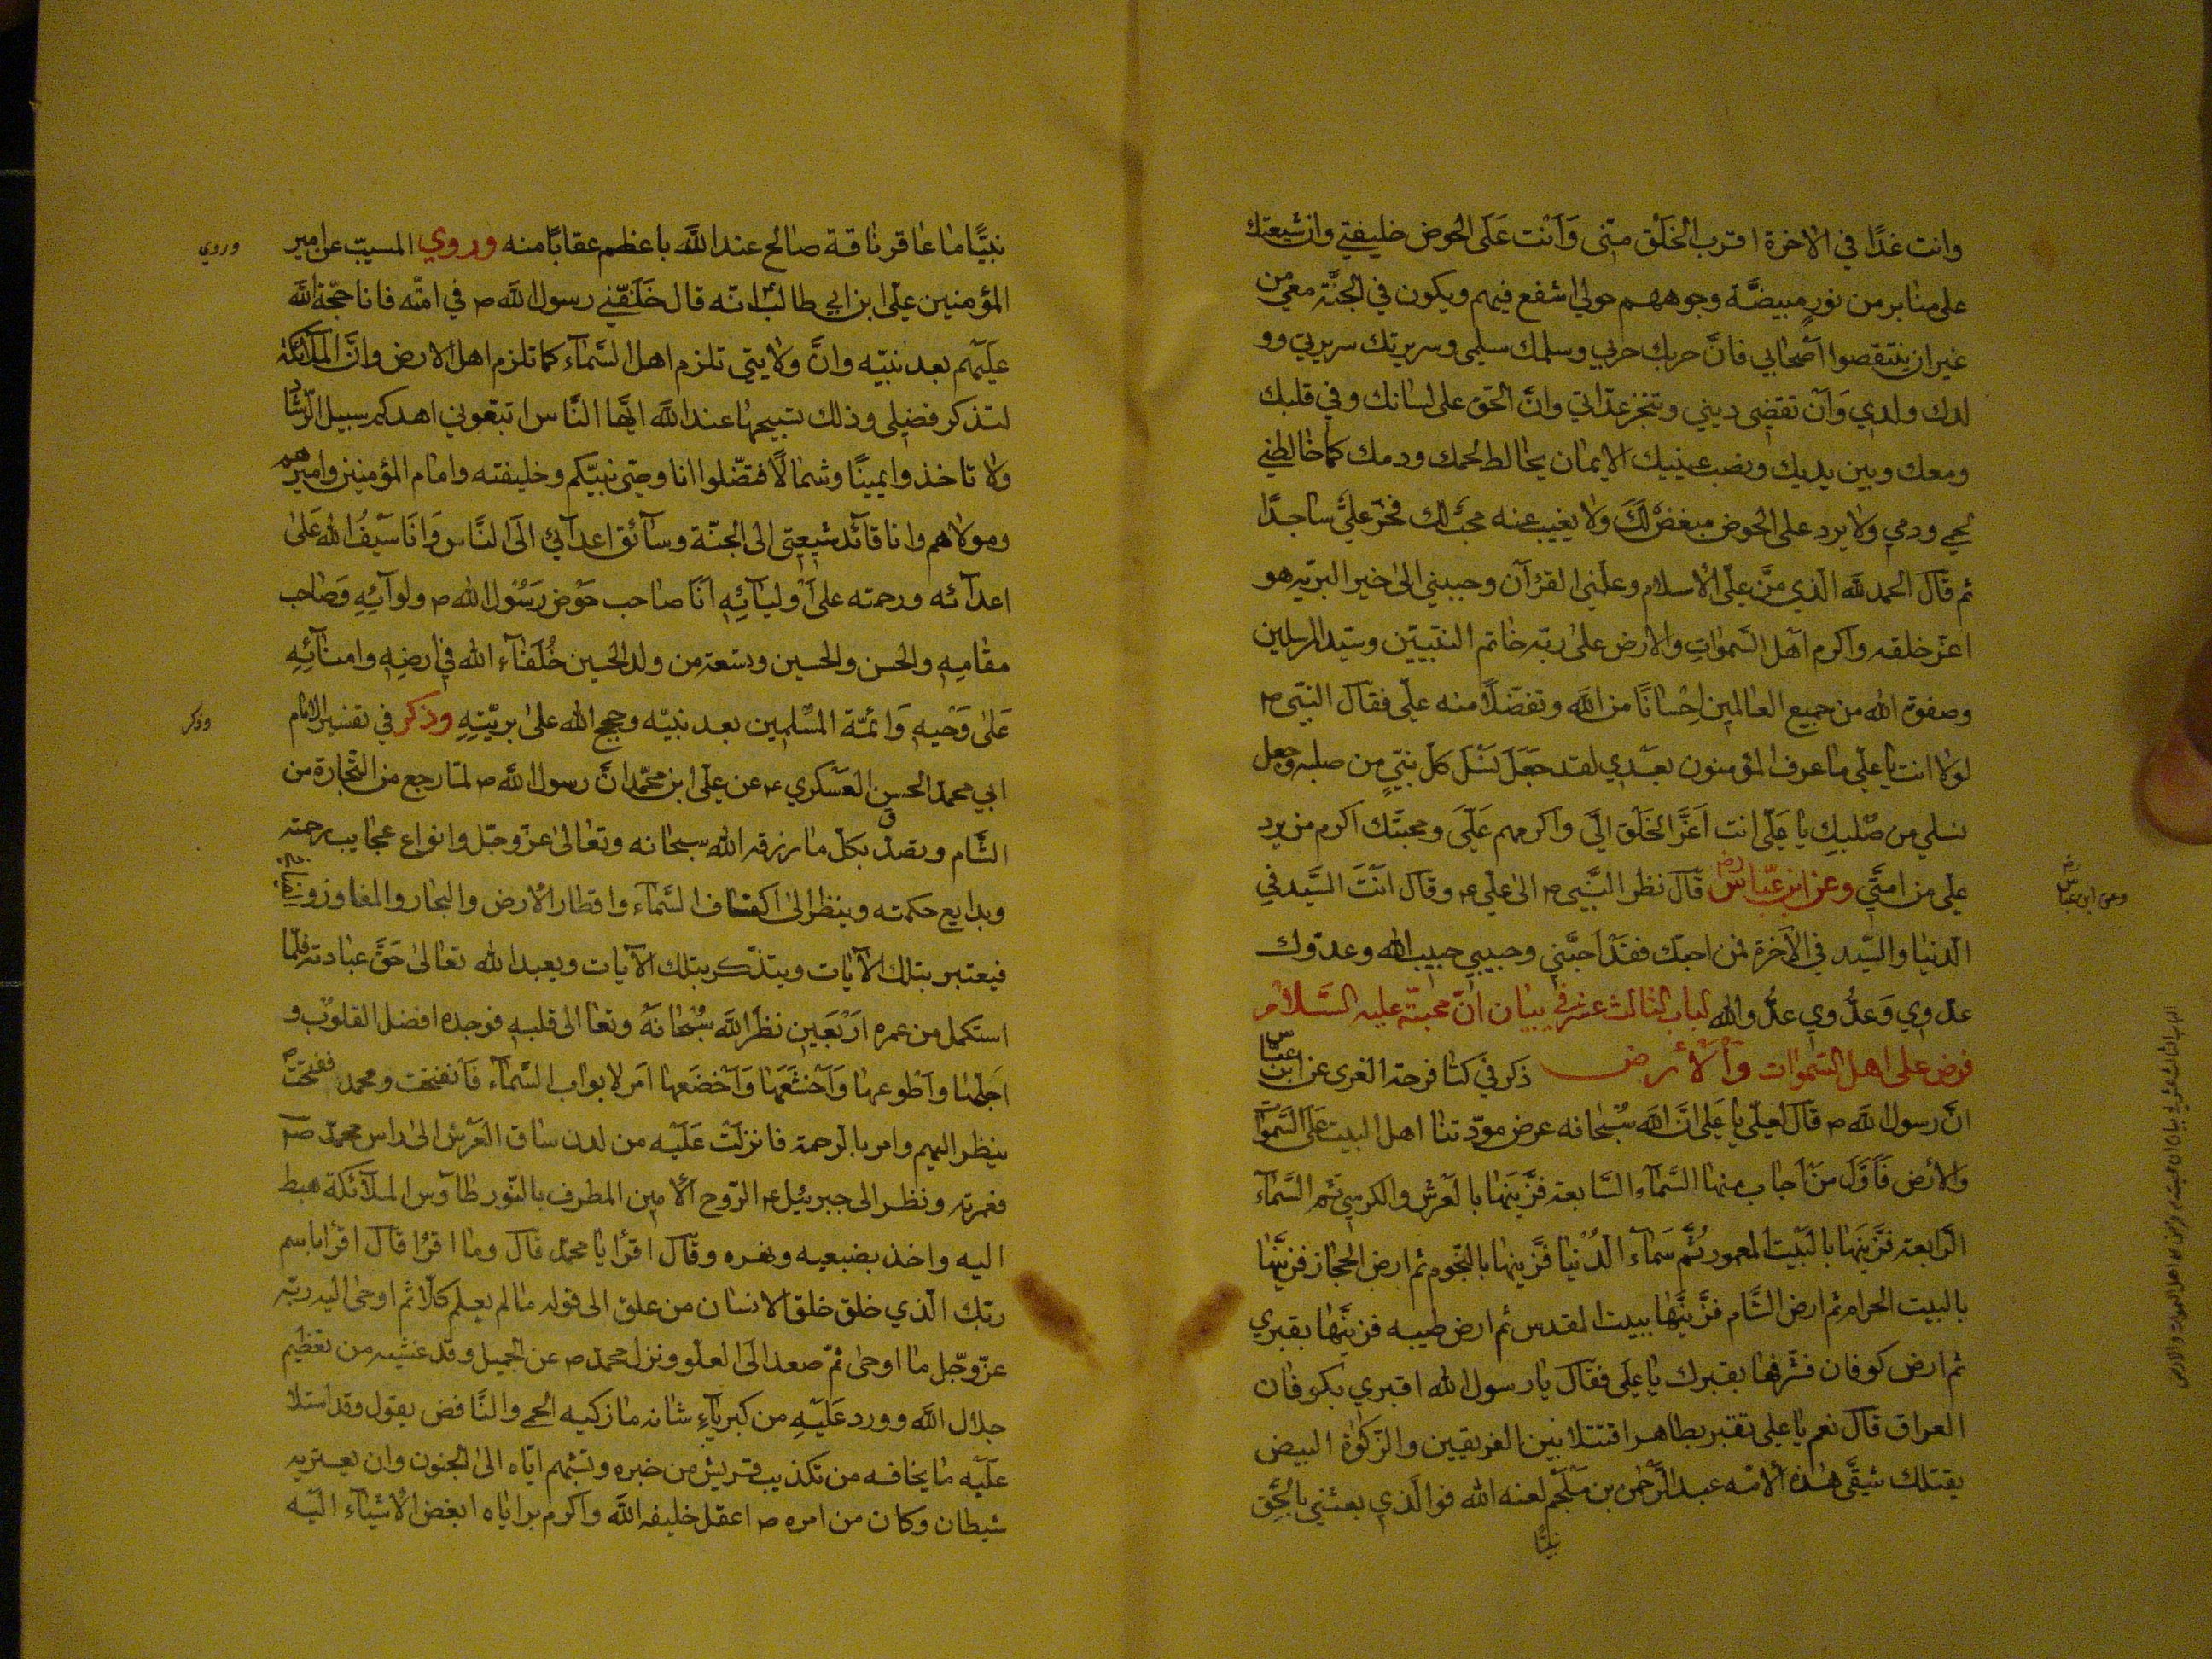 وانت غدًا في الاخرة اقرب الخلق منّى وَانت عَلَى الحوض خليفتي وان شيعتك
على منابر من نورٍ مبيضَّة وجوههم حولي اشفع فيهم ويكون في الجنّة معي من
غير ان ينتقصوا اصحابي فانَّ حربك حربي وسلمك سلمي وسريرتك سريرتي وو
لدك ولدي وَان تقضى ديني وتنجز عداتي وانَّ الحق على لسانك وفي قلبك
ومعك وبين يديك ونصب عينيك الايمان يخالط لحمك ودمك كما خالط
لحمي ودمي ولا يرد على الحوض مبغض لكَ ولا يغيب عنه محبّ لك فخرّ عليّ ساجدًا
ثم قال الحمد لله الّذي منَّ عليّ الاسلام وعلّمني القرآن وحببني الى خير البريّه هو
اعزّ خلقه واكرم اهل السَّموات والارض على ربّه خاتم النبيّين وسيّد المرسلين
وصفوة الله من جميع العالمين اِحْسَانًا من الله وتفضّلًا منه عليّ فقال النبيّ ص
لولا انت يا عليّ ما عرف المؤمنون بعدي لقد جعَل نسْل كلّ نبيّ من صلبه وجعل
نسلي من صُلبك يا عَليّ انت اعَزّ الخَلق اليّ واكرمهم عَليّ ومحبّك اكرم من يرد
عليّ من امتّي وعن ابن عبّاس رض قال نظر النَّبي ص الى علي ع وقال انتَ السَّيد في
الدنيا والسيّد في الآخرة فمن احبّك فقد اَحبَّني وحبيبي حبيب الله وعدوّك
عدوي وَعدُّوي عدُّو الله الباب الثالث عشر في بيان انّ محبّته عليه السَّلام
فرض على اهل السّموات وَالْأرض ذكر في كتا فرحة الغرى عن ابن عبّاس
انّ رسول الله ص قال لعليّ يا عَلي انَّ الله سُبْحانه عرض مودّتنا اهل البيت عَلى السَّموٰت
والأرض فاَوّل من اَجاب منها السَّمآء السَّابعة فزَّينَها بالعَرش والكرسي ثم السَّمآء
الرَّابعة فزَّينَها بالبَيت المعمور ثُمَّ سَمآء الدُّنيا فزَّينها بالنّجوم ثم ارض الحجاز فزيَّنها
بالبيت الحرام ثم ارض الشَّام فزَّينَّها ببيت المقدس ثم ارض طيبه فزيَّنها بقبري
ثم ارض كوفان فشرّفها بقبرك يا علي فقال يا رسول الله اقبري بكوفان
العراق قال نعم يا علي تقبر بظاهرها قتتلا بين الغريقين والزكوة البيض
يقتلك شقّي هذه الأمّه عبد الرَّحمن بن ملجم لعنه الله فوالّذي بعثني بالحَّق
نبيًّا
وعن ابن عباس رض
نبيًّا ما عاقر ناقة صالح عند الله باعظم عقابًا منه وروي المسيب عن امير
المؤمنين عليّ ابن ابي طالب انّه قال خَلَّفني رسول الله ص في امّته فانا حجّة الله
عليهم بعد نبيّه وانَّ ولايتي تلزم اهل السَّمآء كما تلزم اهل الارض وانَّ الملآئكة
لتذكر فضلي وذلك تسبيحها عند الله ايّها النَّاس اتبعوني اهدكم سبيل الرّشاد
ولا تاخذوا يمينًا وشمالًا فتضّلوا انا وصّي نبيّكم وخليفته وامام المؤمنين واميرهم
ومولاهم وانا قآئد شيعتي الى الجنّة وسآئق اعدآئي الَى النَّار وَانَا سَيفُ الله عَلىٰ
اعدآئه ورحمته على اَوليآئِهِ اَنَا صاحب حَوْض رَسُول الله ص ولوآئِهِ وَصاحب
مقامِهِ والحسن والحسين وتسعة من ولد الحسين خُلَفآء الله في اَرضِهِ وامنآئِهِ
عَلىٰ وَحْيهِ وَائمّة المُسْلمِين بعد نبيّه وحجج الله على بريّتِهِ وذكر في تفسير الامام
ابي محمّد الحسن العَسكري ع عن علي ابن محمّد انَّ رسول الله ص لمّا رجع من التّجارة من
الشَّام وتصدّق بكلّ ما رزقه الله سبحانه وتعالىٰ عزّ وجّل وانواع عجايب رحمته
وبدايع حكمته وينظر الىٰ اكناف السَّماء واقطار الأرض والبحار والمفاوز والفيافي
فيعتبر بتلك الآيات ويتذّكر بتلك الآيات ويعبد الله تعالىٰ حقّ عبادته فلمّا
استكمل من عمره ارْبَعَين نظَر الله سُبْحانَهُ وتعا الى قلبهِ فوجده افضل القلوب و
اجلّها واَطوعها وَاَخشَعَها وَاَخضَعها امَر لابواب السَّمآء فَانفتحت ومحمد ففتحت ص
ينظر اليهم وامر بالرحمة فانزلَتْ عَلَيْه من لدن ساق العَرش الى راس محمّد ص
فغمرته ونظر الى جبرئيل ع الرّوح الأمين المطرف بالنّور طآوس الملآئكة هبط
اليه واخذ بضبعيه وهزه وقال اقرأ يا محمّد قال وما اقرأ قال اقرأ باسم
ربّك الّذي خلق خلق الانسان من علق الى قوله ما لم يعلم كلّا ثم اوحى اليه ربّه
عزّ وجّل ما اوحى ثمّ صعد الَى العلّو ونزل محمّد ص عن الجبل وقد غشيه من تعظيم
جلال الله وورد عَليْهِ من كبريآءِ شانه ما ركبه الحمى والنَّافض يقول وقد اشتلا
علَيه ما يخافه من تكذيب قريش من خبره وتتّهم ايّاه الى الجنون وان يعتريه
شيطان وكان من امره ص اعقل خليفه الله واكرم براياه ابغض الأشيآء اليه
وروي
وذكر